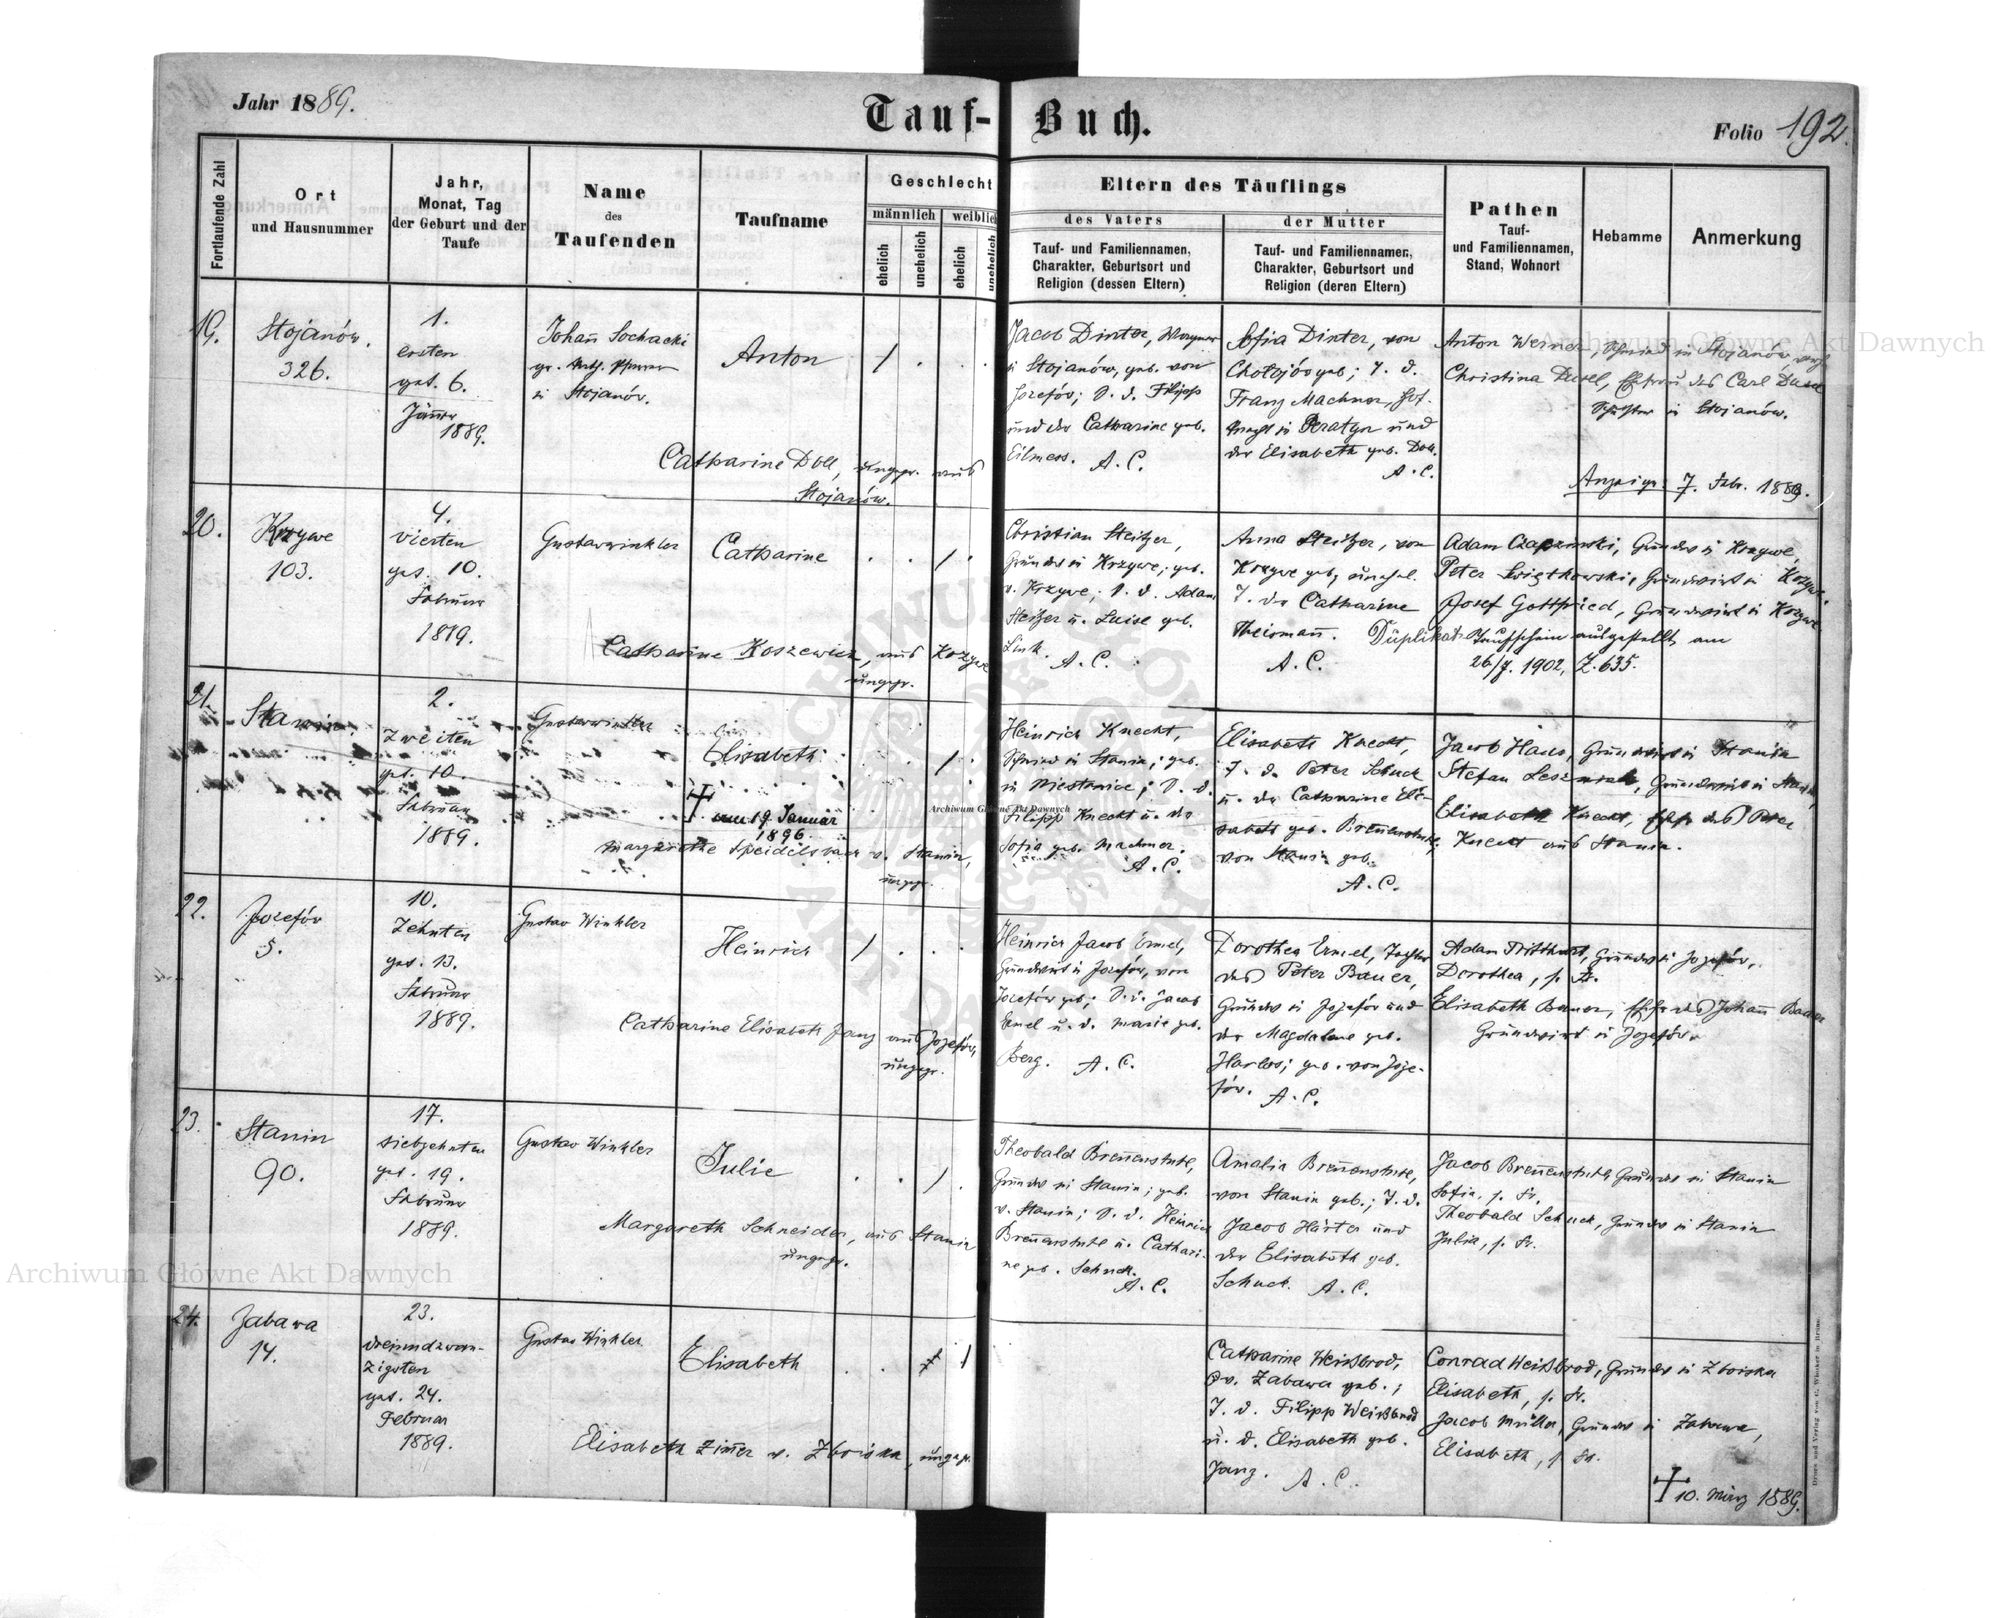 Jahr 1889.
Tauf-Buch.
Folio 192
Fortlaufende Zahl
Ort
und Hausnummer
Jahr,
Monat, Tag
der Geburt und der
Taufe
Name
des
Taufenden
Taufname
Geschlecht
männlich
weiblich
ehelich
unehelich
ehelich
unehelich
Eltern des Täuflings
des Vaters
Tauf- und Familiennamen,
Charakter, Geburtsort und
Religion (dessen Eltern)
der Mutter
Tauf- und Familiennamen,
Charakter, Geburtsort und
Religion (deren Eltern)
Pathen
Tauf-
und Familiennamen,
Stand, Wohnort
Hebamme
Anmerkung
19.
Stojanów.
326.
1.
ersten
get. 6.
Jänner
1889.
Johann Sochacki
gr. kath. Pfarrer
in Stojanów.
Anton
/ . . .
Catharine Doll, ungepr. aus
Stojanów.
Jacob Dinter, Wagner
in Stojanów, geb. von
Jozefów; S. d. Filipp
und der Catharine geb.
Eilmess. A. C.
Sofia Dinter, von
Chołojów geb; T. d.
Franz Machner,
in Peratyn und
der Elisabeth geb. Doll.
A. C.
Anton Weiner, Schmied in Stojanów,
Christina Dusel, Ehefrau des Carl Dusel
in Stojanów.
7. Febr. 1889.
20.
Krzywe
103.
4.
vierten
get. 10.
Februar
1889.
Gustav Winkler
Catharine
. . / .
Catharine Koszewicz, aus Krzywe
ungepr.
Christian Steitzer,
Grundw in Krzywe; geb.
v. Krzywe; S. d. Adam
Steitzer u. Luise geb.
Link. A. C.
Anna Steitzer, von
Krzywe geb; unehel.
T. der Catharine
Theismann.
A. C.
Adam Czapzinski, Grundw in Krzywe,
Peter Swiętkowski, Grundwirt in Krzywe,
Josef Gottfried, Grundwirt in Krzywe
Duplikat Taufschein ausgestellt am
26/7. 1902, Z. 635.
21.
Stanin
2.
zweiten
get. 10.
Februar
1889.
Gustav Winkler
Elisabeth
† am 19. Januar
1896.
. . / .
Margarethe Speidelsbach v. Stanin,
ungepr.
Heinrich Knecht,
Schmied in Stanin; geb.
in Niestanice; S. d.
Filipp Knecht u. der
Sofia geb. Machner.
A. C.
Elisabeth Knecht,
T. d. Peter Schuck
u. der Catharine Eli-
sabeth geb. Brennenstuhl;
von Stanin geb.
A. C.
Jacob Haus, Grundwirt in Stanin
Stefan Leszniak, Grundwirt in Stanin,
Elisabeth Knecht, Ehefr. des Peter
Knecht aus Stanin.
22.
Jozefów
5.
10.
Zehnten
get. 13.
Februar
1889.
Gustav Winkler
Heinrich
/ . . .
Catharine Elisabeth Janz aus Jozefów,
ungepr.
Heinrich Jacob Ermel,
Grundwirt in Jozefów, von
Jozefów geb; S. d. Jacob
Ermel u. d. Marie geb.
Berg. A. C.
Dorothea Ermel, Tochter
des Peter Bauer,
Grundw in Jozefów und
der Magdalene geb.
Harlos; geb. von Joze-
fów. A. C.
Adam Tritthart, Grundw in Jozefów,
Dorothea, s. Fr.
Elisabeth Bauer, Ehefr. des Johann Bauer
Grundwirt in Jozefów.
23.
Stanin
90.
17.
siebzehnten
get. 19.
Februar
1889.
Gustav Winkler
Julie
. . / .
Margareth Schneider, aus Stanin
ungepr.
Theobald Brennenstuhl,
Grundw in Stanin; geb.
v. Stanin; S. d. Heinrich
Brennenstuhl u. Cathari-
ne geb. Schuck.
A. C.
Amalia Brennenstuhl,
von Stanin geb.; T. d.
Jacob Härter und
der Elisabeth geb.
Schuck. A. C.
Jacob Brennenstuhl, Grundw in Stanin
Sofia, s. Fr.
Theobald Schuck, Grundw in Stanin
Julia, s. Fr.
24.
Zabawa
14.
23.
dreiundzwan-
zigsten
get. 24.
Februar
1889.
Gustav Winkler
Elisabeth
Elisabeth Zimer v. Zboiska, ungepr.
Catharine Weißbrod,
v. Zabawa geb.;
T. d. Filipp Weißbrod
u. d. Elisabeth geb.
Janz. A. C.
Conrad Weißbrod, Grundw in Zboiska
Elisabeth, s. Fr.
Jacob Müller, Grundw in Zabawa,
Elisabeth, s. Fr.
† 10. März 1889.
Druck und Verlag von C. Winiker in Brünn.
Archiwum Główne Akt Dawnych
Archiwum Główne Akt Dawnych
Archiwum Główne Akt Dawnych
ARCHIWUM GŁÓWNE AKT DAWNYCH